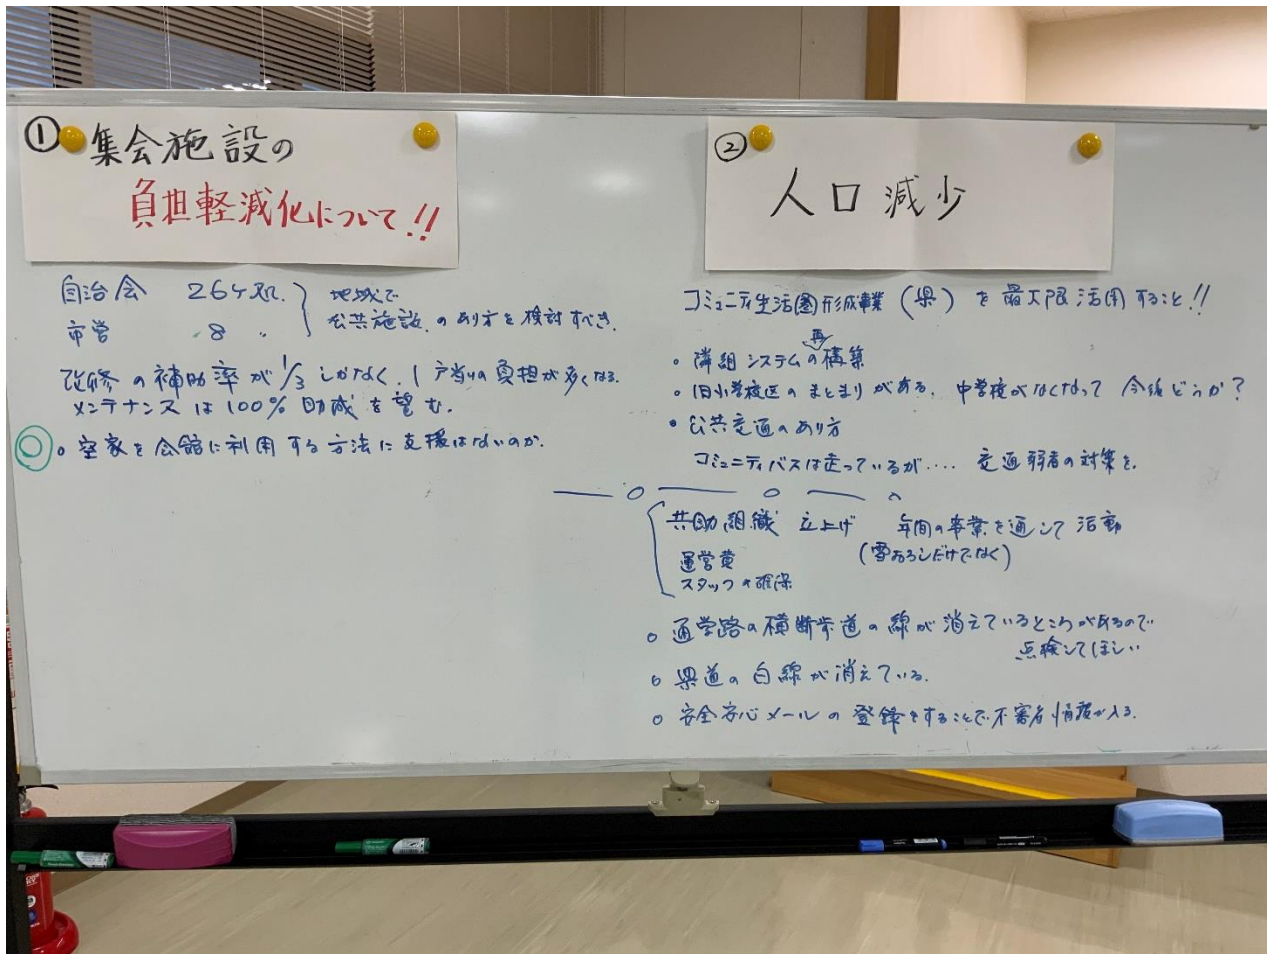 ① 集会施設の
負担軽減化について!!
自治会 26ヶ処.
市営 8 〃
地域で
公共施設のあり方を検討すべき.
改修の補助率が1/3しかなく、1戸当りの負担が多くなる.
メンテナンスは100%助成を望む.
◎ ○ 空家を会館に利用する方法に支援はないのか.
② 人口減少
コミュニティ生活圏形成事業(県)を最大限活用すること!!
・隣組システムの再構築
・旧小学校区のまとまりがある. 中学校がなくなって今後どうか?
・公共交通のあり方
コミュニティバスは走っているが.... 交通弱者の対策を.
共助組織 立上げ 年間の事業を通して活動
運営費 (雪おろしだけでなく)
スタッフの確保
○ 通学路の横断歩道の線が消えているところがあるので
点検してほしい
○ 県道の白線が消えている.
○ 安全安心メールの登録をすることで不審者情報が入る.